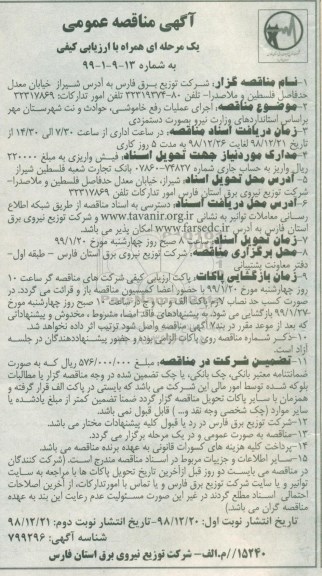 آگهی مناقصه عمومی
یک مرحله ای همراه با ارزیابی کیفی
به شماره ۱۳-۹-۱-۹۹
۱-نام مناقصه گزار: شرکت توزیع برق فارس به آدرس شیراز خیابان معدل
حدفاصل فلسطین و ملاصدرا- تلفن ۸۰-۳۲۳۱۹۳۷۴ تلفن امور تدارکات: ۳۲۳۱۷۸۶۹
۲-موضوع مناقصه: اجرای عملیات رفع خاموشی، حوادث و نت شهرستان مهر
براساس استانداردهای وزارت نیرو بصورت دستمزدی
۳-زمان دریافت اسناد مناقصه: در ساعت اداری از ساعت ۷/۳۰ الی ۱۴/۳۰ از
تاریخ ۹۸/۱۲/۲۱ لغایت ۹۸/۱۲/۲۶ به مدت ۵ روز کاری
۴-مدارک موردنیاز جهت تحویل اسناد: فیش واریزی به مبلغ ۲۲۰۰۰۰
ریال واریز به حساب جاری شماره ۰۷۸۶۰۰۷۴۸۲۷ بانک تجارت شعبه فلسطین شیراز
۵-آدرس محل تحویل اسناد: شیراز، خیابان معدل حدفاصل فلسطین و ملاصدرا-
شرکت توزیع نیروی برق استان فارس امور تدارکات تلفن ۳۲۳۱۷۸۶۹
۶-آدرس محل دریافت اسناد: دسترسی به اسناد مناقصه از طریق شبکه اطلاع
رسانی معاملات توانیر به نشانی www.tavanir.org.ir و شرکت توزیع نیروی برق
استان فارس به آدرس www.farsedc.ir امکان پذیر می باشد.
۷-زمان تحویل اسناد: ساعت ۸ صبح روز چهارشنبه مورخ ۹۹/۱/۲۰
۸-محل برگزاری مناقصه: شرکت توزیع نیروی برق استان فارس - طبقه اول-
دفتر معاونت پشتیبانی
۹-زمان بازگشایی پاکات: پاکت ارزیابی کیفی شرکت های مناقصه گر ساعت ۱۰
صبح روز چهارشنبه مورخ ۹۹/۱/۲۰ با حضور اعضا کمیسیون مناقصه باز و قرائت می گردد. در
صورت کسب حد نصاب لازم پاکت الف و ب و ج از ساعت ۱۰ صبح روز چهارشنبه مورخ
۹۹/۱/۲۷ بازگشایی می شود. به پیشنهادهای فاقد امضاء، مشروط، مخدوش و پیشنهاداتی
که بعد از موعد مقرر در بند ۷ آگهی مناقصه واصل شود ترتیب اثر داده نخواهد شد.
۱۰-ذکر شماره مناقصه روی پاکات الزامی بوده و حضور پیشنهاددهندگان در جلسه
آزاد است.
۱۱-تضمین شرکت در مناقصه: مبلغ ۵۷۶/۰۰۰/۰۰۰ ریال که به صورت
ضمانتنامه معتبر بانکی، چک بانکی، یا چک تضمین شده در وجه مناقصه گزار یا مطالبات
بلوکه شده توسط امور مالی این شرکت می باشد که بایستی در پاکت الف قرار گرفته و
همزمان با سایر پاکات تحویل مناقصه گزار گردد ضمنا تضمین کمتر از مبلغ یادشده یا
سایر موارد (چک شخصی وجه نقد و...) قابل قبول نمی باشد.
۱۲-شرکت توزیع برق فارس در رد یا قبول کلیه پیشنهادات مختار می باشد.
۱۳-مناقصه به صورت عمومی و در یک مرحله برگزار می گردد.
۱۴-پرداخت کلیه هزینه های کسورات قانونی به عهده برنده مناقصه می باشد.
۱۵-سایر اطلاعات و جزییات مربوط در اسناد مناقصه مندرج است. (شرکت کنندگان
در مناقصه می بایست دو روز قبل ازآخرین تاریخ تحویل پاکات ها با مراجعه به سایت
توانیر و یا سایت شرکت توزیع برق فارس و یا تماس با امورتدارکات، از آخرین اصلاحات
احتمالی اسناد مطلع گردند در غیر این صورت مسئولیت عدم رعایت این بند به عهده
مناقصه گران می باشد)
تاریخ انتشار نوبت اول: ۹۸/۱۲/۲۰-تاریخ انتشار نوبت دوم: ۹۸/۱۲/۲۱
شناسه آگهی: ۷۹۹۲۹۶
۱۵۲۴۰//م.الف- شرکت توزیع نیروی برق استان فارس